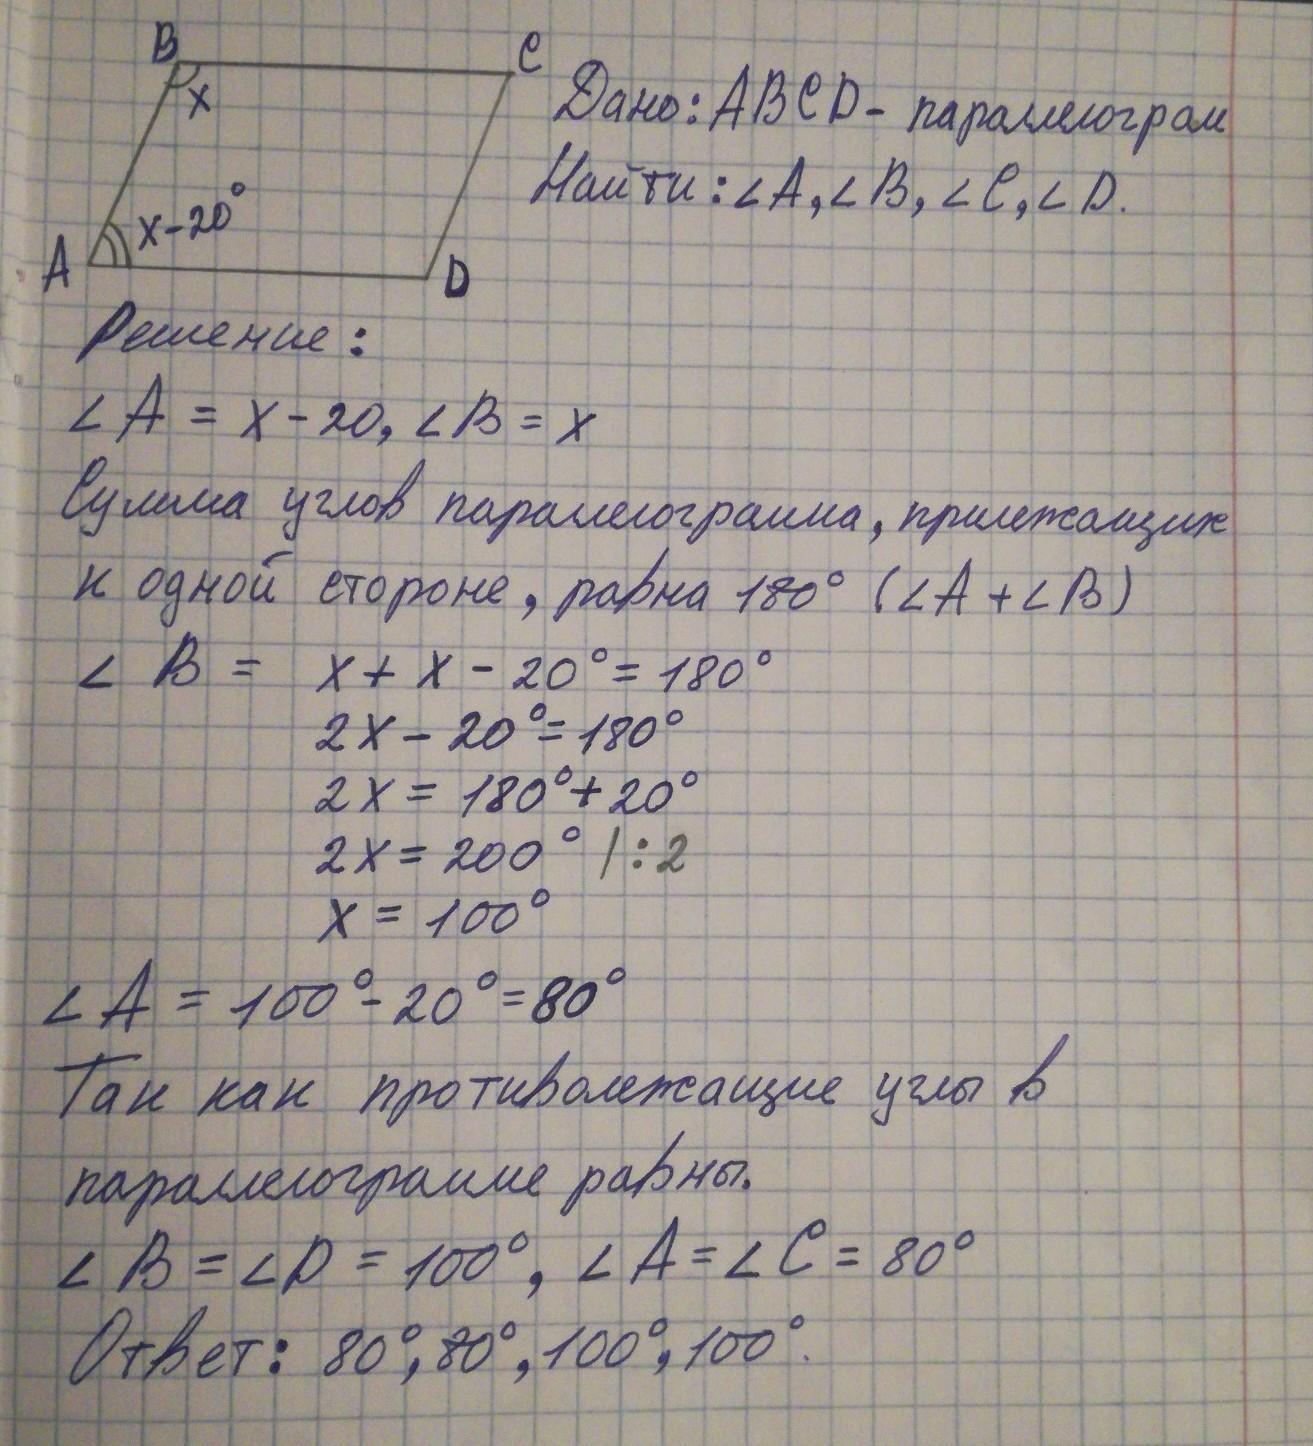 B
C
x
x-20°
A
D
Дано: ABCD - параллелограм
Найти: ∠A, ∠B, ∠C, ∠D.
Решение:
∠A = x - 20, ∠B = x
Сумма углов параллелограмма, прилежащих
к одной стороне, равна 180° (∠A + ∠B)
∠B = x + x - 20° = 180°
2x - 20° = 180°
2x = 180° + 20°
2x = 200° /:2
x = 100°
∠A = 100° - 20° = 80°
Так как противолежащие углы в
параллелограмме равны.
∠B = ∠D = 100°, ∠A = ∠C = 80°
Ответ: 80°, 80°, 100°, 100°.